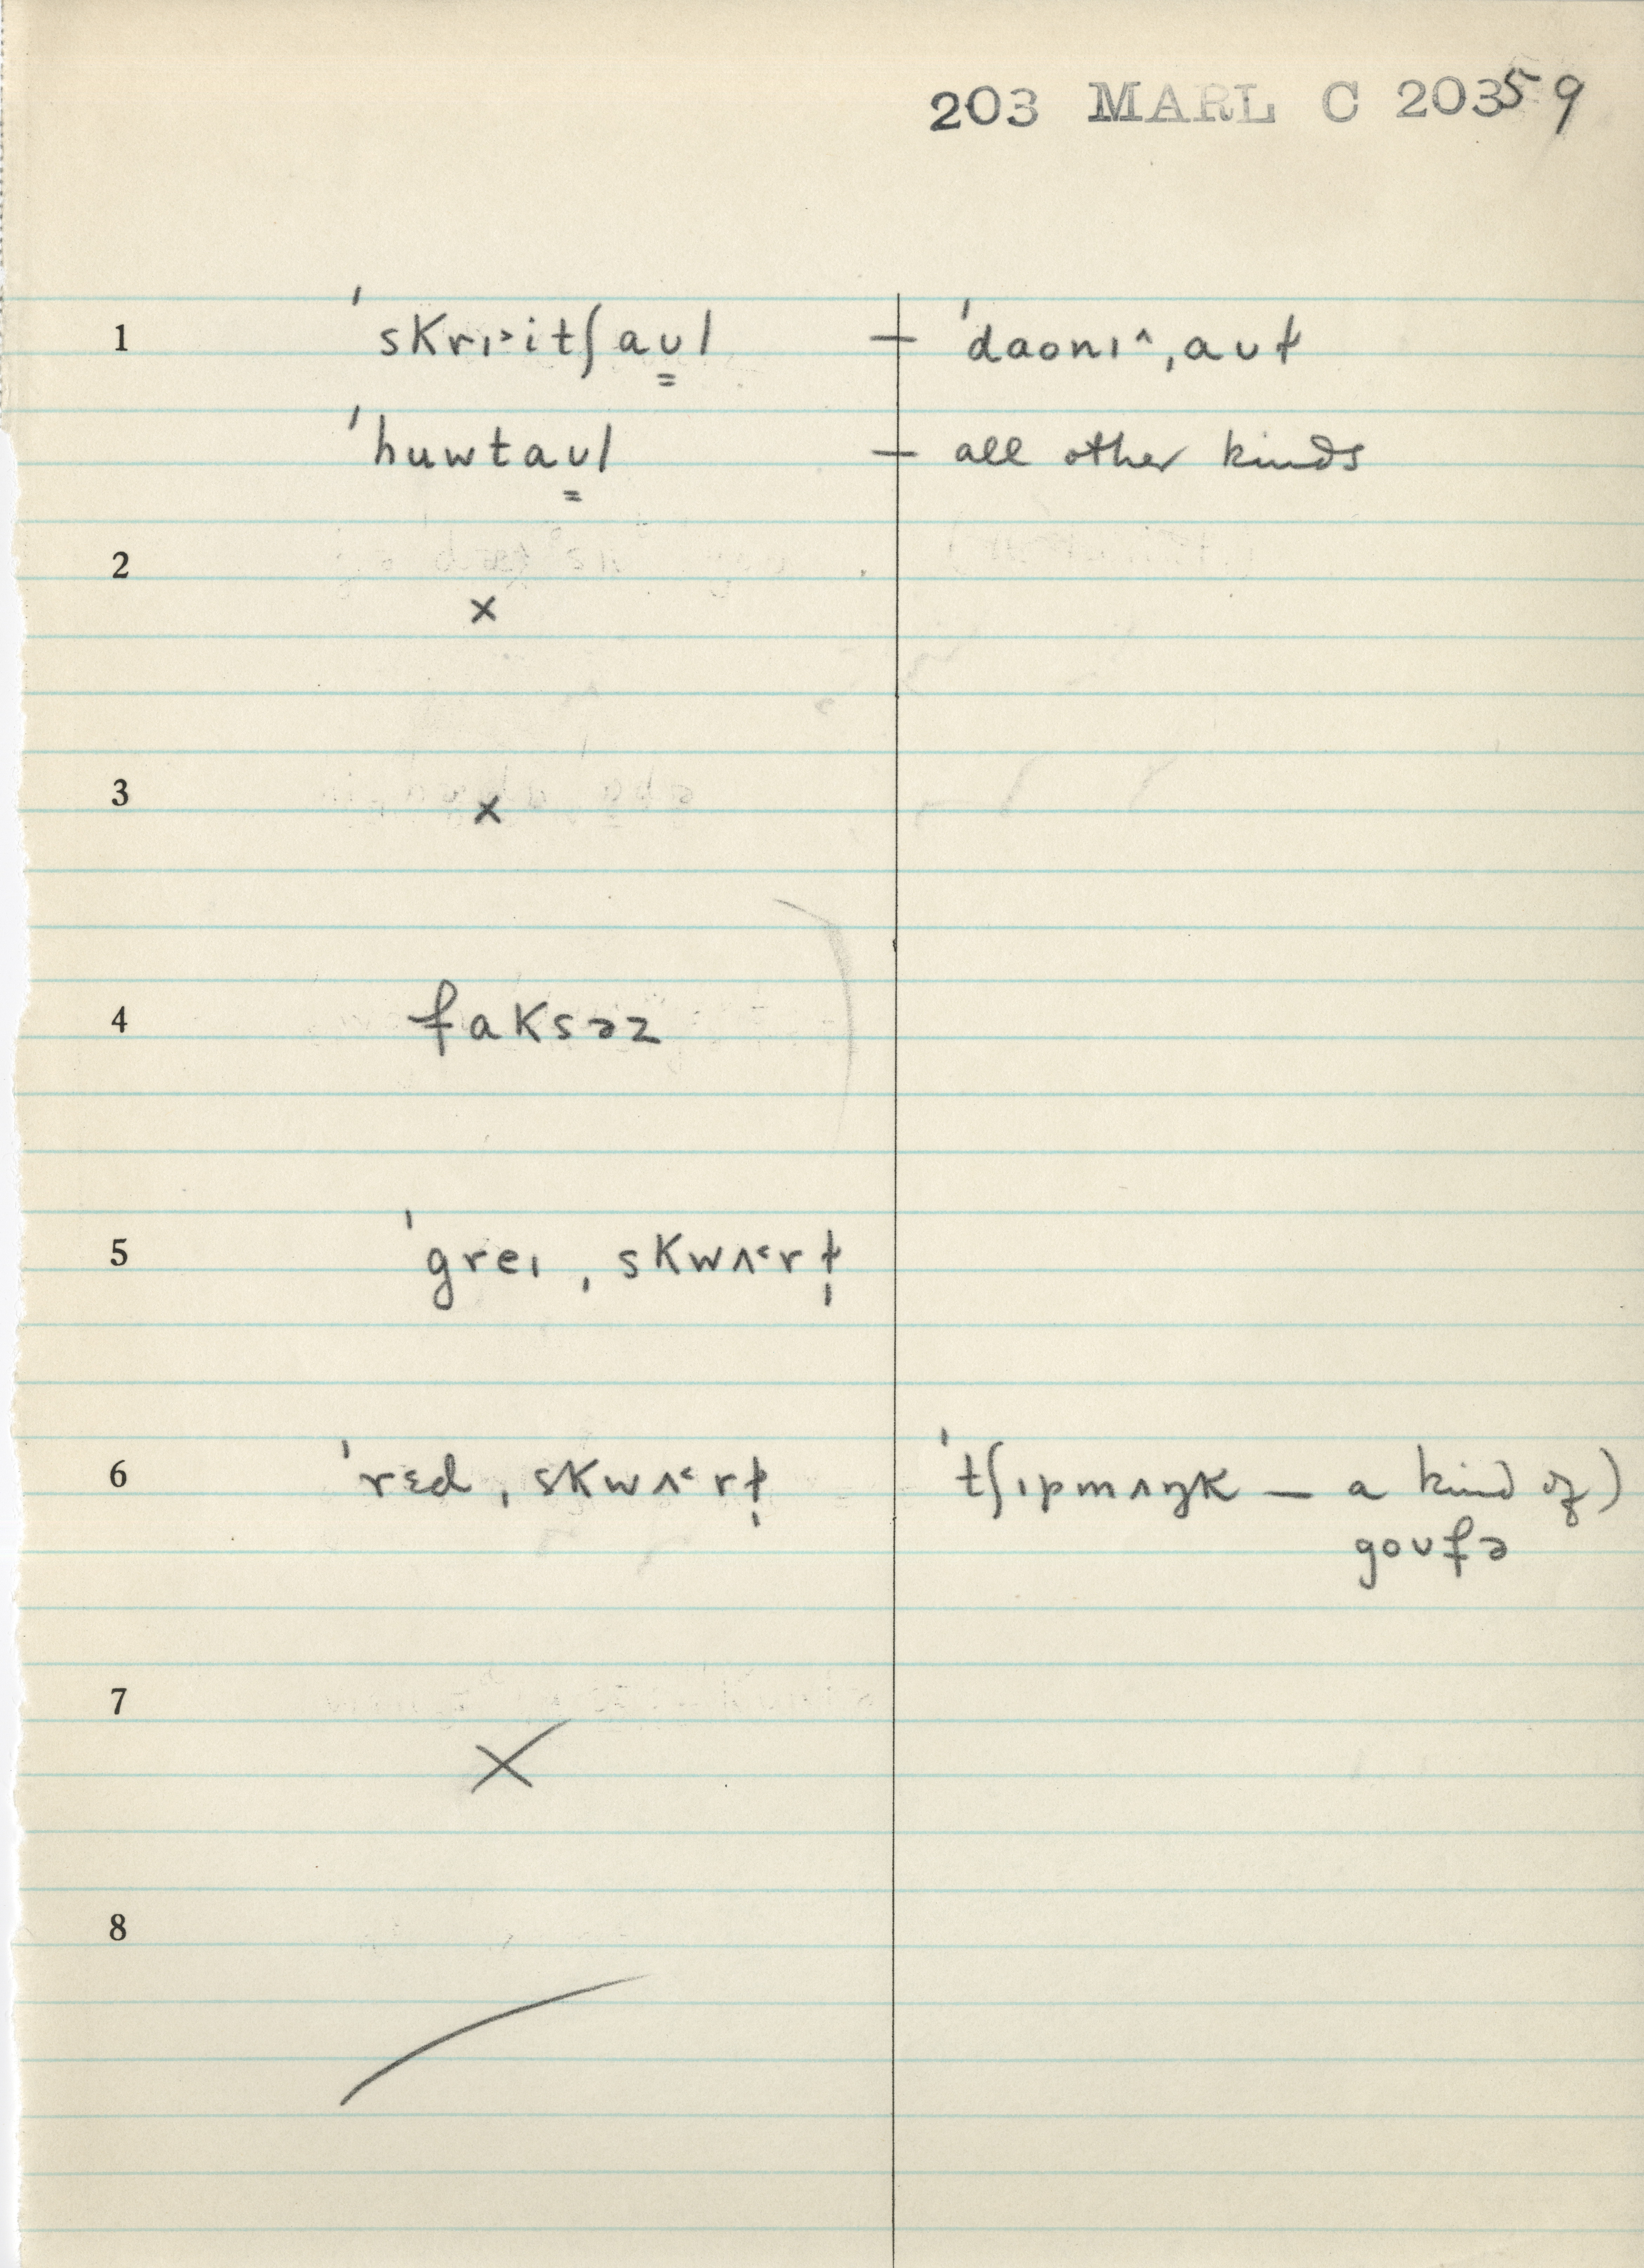 203 MARL C 203 59
1 ˈskrɪ˃itʃaʊ̳l — ˈdaonɪ^ˌaʊɫ
ˈhuwtaʊ̳l — all other kinds
2
×
3
×
4 faksəz
5 ˈgreɪˌskwʌ˂rɫ̩
6 ˈrɛdˌskwʌ˂rɫ̩ ˈtʃɪpmʌŋk — a kind of)
goʊfə
7
×
8